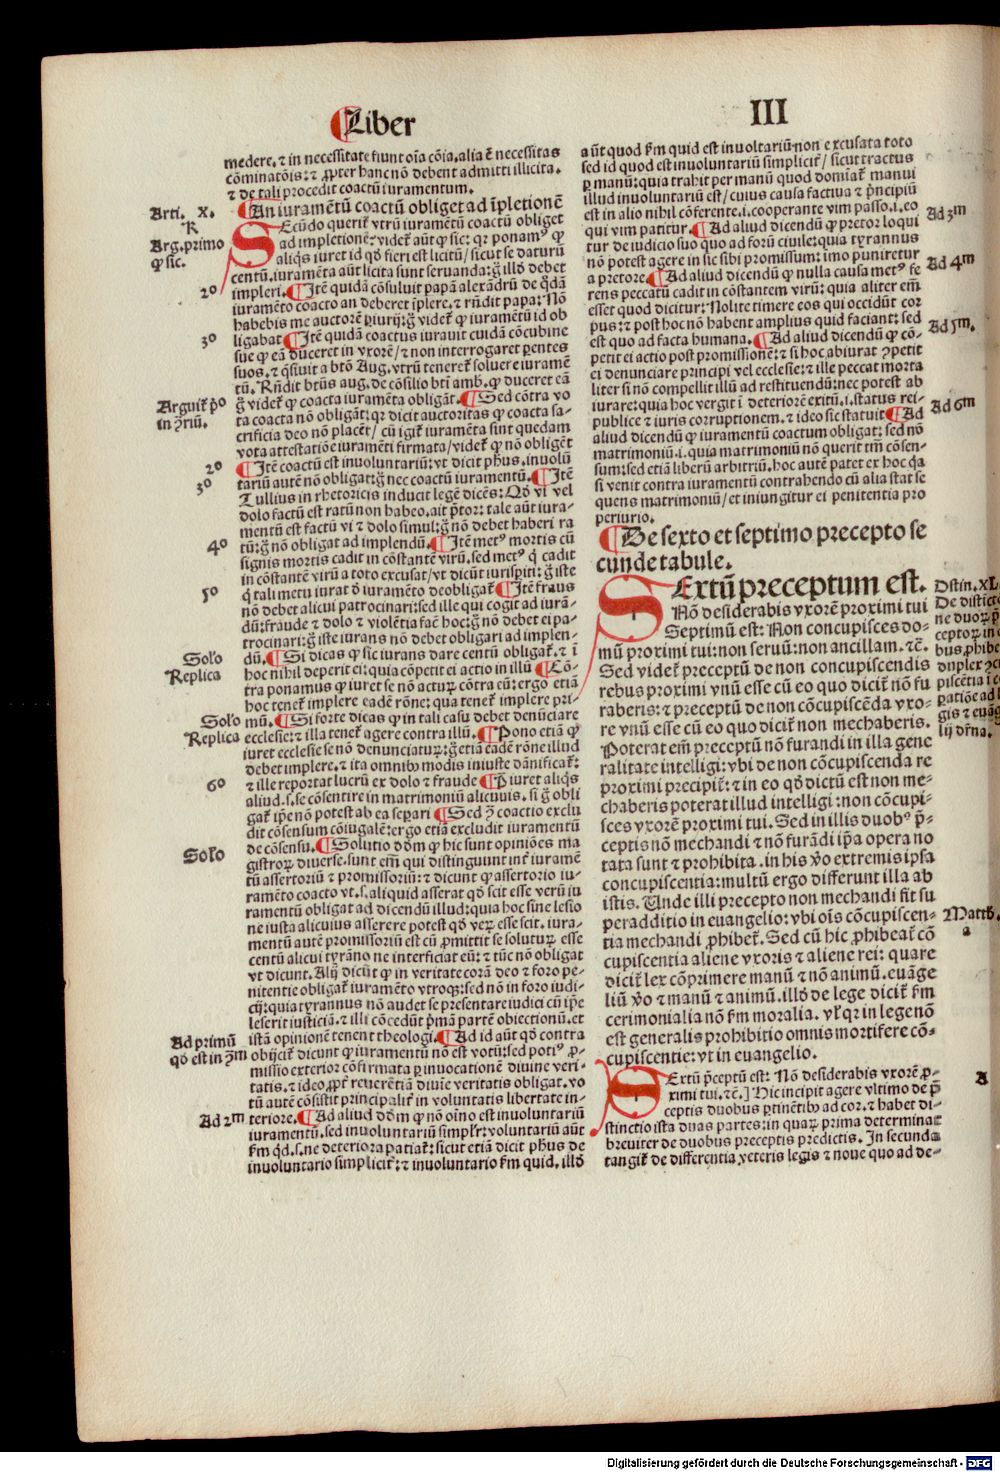 Liber
III
medere. ⁊ in necessitate fiunt oĩa cõia. alia ẽ necessitas
cõminatõis: ⁊ ꝓpter hanc nõ debent admitti illicita.
⁊ de tali procedit coactũ iuramentum.
Arti. X.
¶An iuramẽtũ coactũ obliget ad ĩpletionẽ
R
SEcũdo querit᷑ vtrũ iuramẽtũ coactũ obliget
Arg. primo
ꝙ sic.
ad impletionẽ: videt᷑ aũt ꝙ sic: qꝛ ponamꝰ ꝙ
aliq̃s iuret id qđ fieri est licitũ/ sicut se daturũ
centũ. iuramẽta aũt licita sunt seruanda: g̃ illđ debet
2º
impleri. ¶Itẽ quidã cõsuluit papã alexãdrũ de q̃dã
iuramẽto coacto an deberet ĩplere. ⁊ rñdit papa: Nõ
habebis me auctorẽ ꝑiurij: g̃ videt᷑ ꝙ iuramẽtũ id ob
3º
ligabat ¶Itẽ quidã coactus iurauit cuidã cõcubine
sue ꝙ eã duceret in vxorẽ/ ⁊ non interrogaret ꝑentes
suos. ⁊ q̃siuit a btõ Aug. vtrũ teneret᷑ soluere iuramẽ
tũ. Rñdit btũs aug. de cõsilio btĩ amb. ꝙ duceret eã
Arguit᷑ pº
in ꝯriũ.
g̃ videt᷑ ꝙ coacta iuramẽta obligãt. ¶Sed cõtra vo
ta coacta nõ obligãt: qꝛ dicit auctoritas ꝙ coacta sa-
crificia deo nõ placẽt/ cũ igit᷑ iuramẽta sint quedam
vota attestatiõe iuramẽti firmata/ videt᷑ ꝙ nõ obligẽt
2º
¶Itẽ coactũ est inuoluntariũ: vt dicit phũs. inuolũ
3º
tariũ autẽ nõ obligat: g̃ nec coactũ iuramentũ. ¶Itẽ
Tullius in rhetoricis inducit legẽ dicẽs: Qđ vi vel
dolo factũ est ratũ non habeo. ait p̃tor: tale aũt iura-
mentũ est factũ vi ⁊ dolo simul: g̃ nõ debet haberi ra
4º
tũ: g̃ nõ obligat ad implendũ. ¶Itẽ metꝰ mortis cũ
signis mortis cadit in cõstantẽ virũ. sed metꝰ q̃ cadit
in cõstantẽ virũ a toto excusat/ vt dicũt iurisꝑiti: g̃ iste
5º
q̃ tali metu iurat õ iuramẽto deobligat᷑ ¶Itẽ fraus
nõ debet alicui patrocinari: sed ille qui cogit ad iurã-
dũ: fraudẽ ⁊ dolũ ⁊ violẽtiã facẽ hoc: g̃ nõ debet ei pa-
trocinari: g̃ iste iurans nõ debet obligari ad implen-
Solo
dũ. ¶Si dicas ꝙ sic iurans dare centũ obligat᷑. ⁊ ĩ
Replica
hoc nihil deperit ei: quia cõpetit ei actio in illũ ¶Cõ-
tra ponamus ꝙ iuret se nõ acturꝝ cõtra eũ: ergo etiã
hoc tenet᷑ implere eadẽ rõne: qua tenet᷑ implere pri-
Solo
mũ. ¶Si forte dicas ꝙ in tali casu debet denũciare
Replica
ecclesie: ⁊ illa tenet᷑ agere contra illũ. ¶Pono etiã ꝙ
iuret ecclesie se nõ denunciaturꝝ: g̃ etiã eãdẽ rõne illud
debet implere. ⁊ ita omnibꝰ modis iniuste dãnificat᷑:
6º
⁊ ille reportat lucrũ ex dolo ⁊ fraude ¶P iuret aliq̃s
aliud. s. se cõsentire in matrimoniũ alicuius. si g̃ obli
gat᷑ ip̃e nõ potest ab ea separi ¶Sed ꝯ coactio exclu
dit cõsensum cõiugalẽ: ergo etiã excludit iuramentũ
Solo
de cõsensu. ¶Solutio dõm ꝙ hic sunt opiniões ma
gistroꝝ diuerse. sunt em̃ qui distinguunt int᷑ iuramẽ
tũ assertoriũ ⁊ promissoriũ: ⁊ dicunt ꝙ assertorio iu-
ramẽto coacto vt. s. aliquid asserat qđ scit esse verũ iu
ramentũ obligat ad dicendũ illud: quia hoc sine lesio
ne iusta alicuius asserere potest qđ veꝝ esse scit. iura-
mentũ autẽ promissoriũ est cũ ꝓmittit se soluturꝝ esse
centũ alicui tyrãno ne interficiat eũ: ⁊ tũc nõ obligat
vt dicunt. Alij dicũt ꝙ in veritate corã deo ⁊ foro pe-
nitentie obligat᷑ iuramẽto vtroqꝫ: sed nõ in foro iudi-
cij: quia tyrannus nõ audet se presentare iudici cũ ip̃e
leserit iusticiã. ⁊ illi cõcedũt p̃mã partẽ obiectionũ. et
Ad primũ
qđ est in ꝯm
istã opinionẽ tenent theologi. ¶Ad id aũt qđ contra
obijcit᷑ dicunt ꝙ iuramentũ nõ est votũ: sed potiꝰ ꝓ-
missio exterior cõfirmata ꝑ inuocationẽ diuine veri-
tatis. ⁊ ideo ꝓpt᷑ reuerẽtiã diuine veritatis obligat. vo
tũ autẽ cõsistit principalit᷑ in voluntatis libertate in-
Ad 2m
teriore. ¶Ad aliud dõm ꝙ nõ oĩno est inuoluntariũ
iuramentũ. sed inuoluntariũ simplr̃: voluntariũ aũt
km̃ qđ. s. ne deteriora patiat᷑: sicut etiã dicit phũs de
inuoluntario simplicit᷑: ⁊ inuoluntario km̃ quid. illđ
aũt quod km̃ quid est inuoltariũ non excusat a toto
sed id quod est inuoluntariũ simplicit᷑/ sicut tractus
ꝑ manũ: quia trahit per manũ quod domĩat᷑ manui
illud inuoluntariũ est/ cuius causa factiua ⁊ p̃ncipiũ
est in alio nihil cõferente. i. cooperante vim passo. i. eo
Ad 3m
qui vim patitur. ¶Ad aliud dicendũ ꝙ pretor loqui
tur de iudicio suo quo ad forũ ciuile: quia tyrannus
nõ potest agere in sic sibi promissum: imo puniretur
Ad 4m
a pretore. ¶Ad aliud dicendũ ꝙ nulla causa metꝰ fe
rens peccatũ cadit in cõstantem virũ: quia aliter em̃
esset quod dicitur: Nolite timere eos qui occidũt cor
pus: ⁊ post hoc nõ habent amplius quid faciant: sed
Ad 5m.
est quo ad facta humana. ¶Ad aliud dicendũ ꝙ cõ-
petit ei actio post promissionẽ: ⁊ si hoc abiurat ꝯpetit
ei denunciare principi vel ecclesie: ⁊ ille peccat morta
liter si nõ compellit illũ ad restituendũ: nec potest ab
iurare: quia hoc vergit ĩ deteriorẽ exitũ. i. status rei-
Ad 6m
publice ⁊ iuris corruptionem. ⁊ ideo sic statuit ¶Ad
aliud dicendũ ꝙ iuramentũ coactum obligat: sed nõ
matrimoniũ. i. quia matrimoniũ nõ querit tm̃ cõsen-
sum: sed etiã liberũ arbitriũ. hoc autẽ patet ex hoc q̃a
si venit contra iuramentũ contrahendo cũ alia stat se
quens matrimoniũ/ et iniungitur ei penitentia pro
periurio.
¶De sexto et septimo precepto se
cunde tabule.
SExtũ preceptum est.
Nõ desiderabis vxorẽ proximi tui
Septimũ est: Non concupisces do-
mũ proximi tui: non seruũ: non ancillam. ⁊c̃.
Sed videt᷑ preceptũ de non concupiscendis
rebus proximi vnũ esse cũ eo quo dicit᷑ nõ fu
raberis: ⁊ preceptũ de non cõcupiscẽda vxo-
re vnũ esse cũ eo quo dicit᷑ non mechaberis.
Poterat em̃ preceptũ nõ furandi in illa gene
ralitate intelligi: vbi de non cõcupiscenda re
proximi precipit᷑: ⁊ in eo qđ dictũ est non me-
chaberis poterat illud intelligi: non cõcupi-
sces vxorẽ proximi tui. Sed in illis duobꝰ p̃-
ceptis nõ mechandi ⁊ nõ furãdi ip̃a opera no
tata sunt ⁊ prohibita. in his ṽo extremis ipsa
concupiscentia: multũ ergo differunt illa ab
istis. Unde illi precepto non mechandi fit su
peradditio in euangelio: vbi oĩs cõcupiscen-
tia mechandi ꝓhibet᷑. Sed cũ hic ꝓhibeat᷑ cõ
cupiscentia aliene vxoris ⁊ aliene rei: quare
dicit᷑ lex cõprimere manũ ⁊ nõ animũ. euãge
liũ ṽo ⁊ manũ ⁊ animũ. illđ de lege dicit᷑ km̃
cerimonialia nõ km̃ moralia. vl̃ qꝛ in lege nõ
est generalis prohibitio omnis mortifere cõ-
cupiscentie: vt in euangelio.
Distin. XL
De distictõ
ne duoꝝ p̃
ceptoꝝ in
bus ꝓhibe
duplex ꝯcu
piscẽtia ĩ c
ꝑatiõe ad l
gis ⁊ euãg
lij dr̃na.
Matth.
a
A
SExtũ p̃ceptũ est: Nõ desiderabis vxorẽ ꝓ-
ximi tui. ⁊c̃.] Hic incipit agere vltimo de p̃
ceptis duobus ꝑtinẽtibꝰ ad cor. ⁊ habet di-
stinctio ista duas partes: in quaꝝ prima determinat
breuiter de duobus preceptis predictis. In secunda
tangit᷑ de differentia veteris legis ⁊ noue quo ad de-
Digitalisierung gefördert durch die Deutsche Forschungsgemeinschaft - DFG